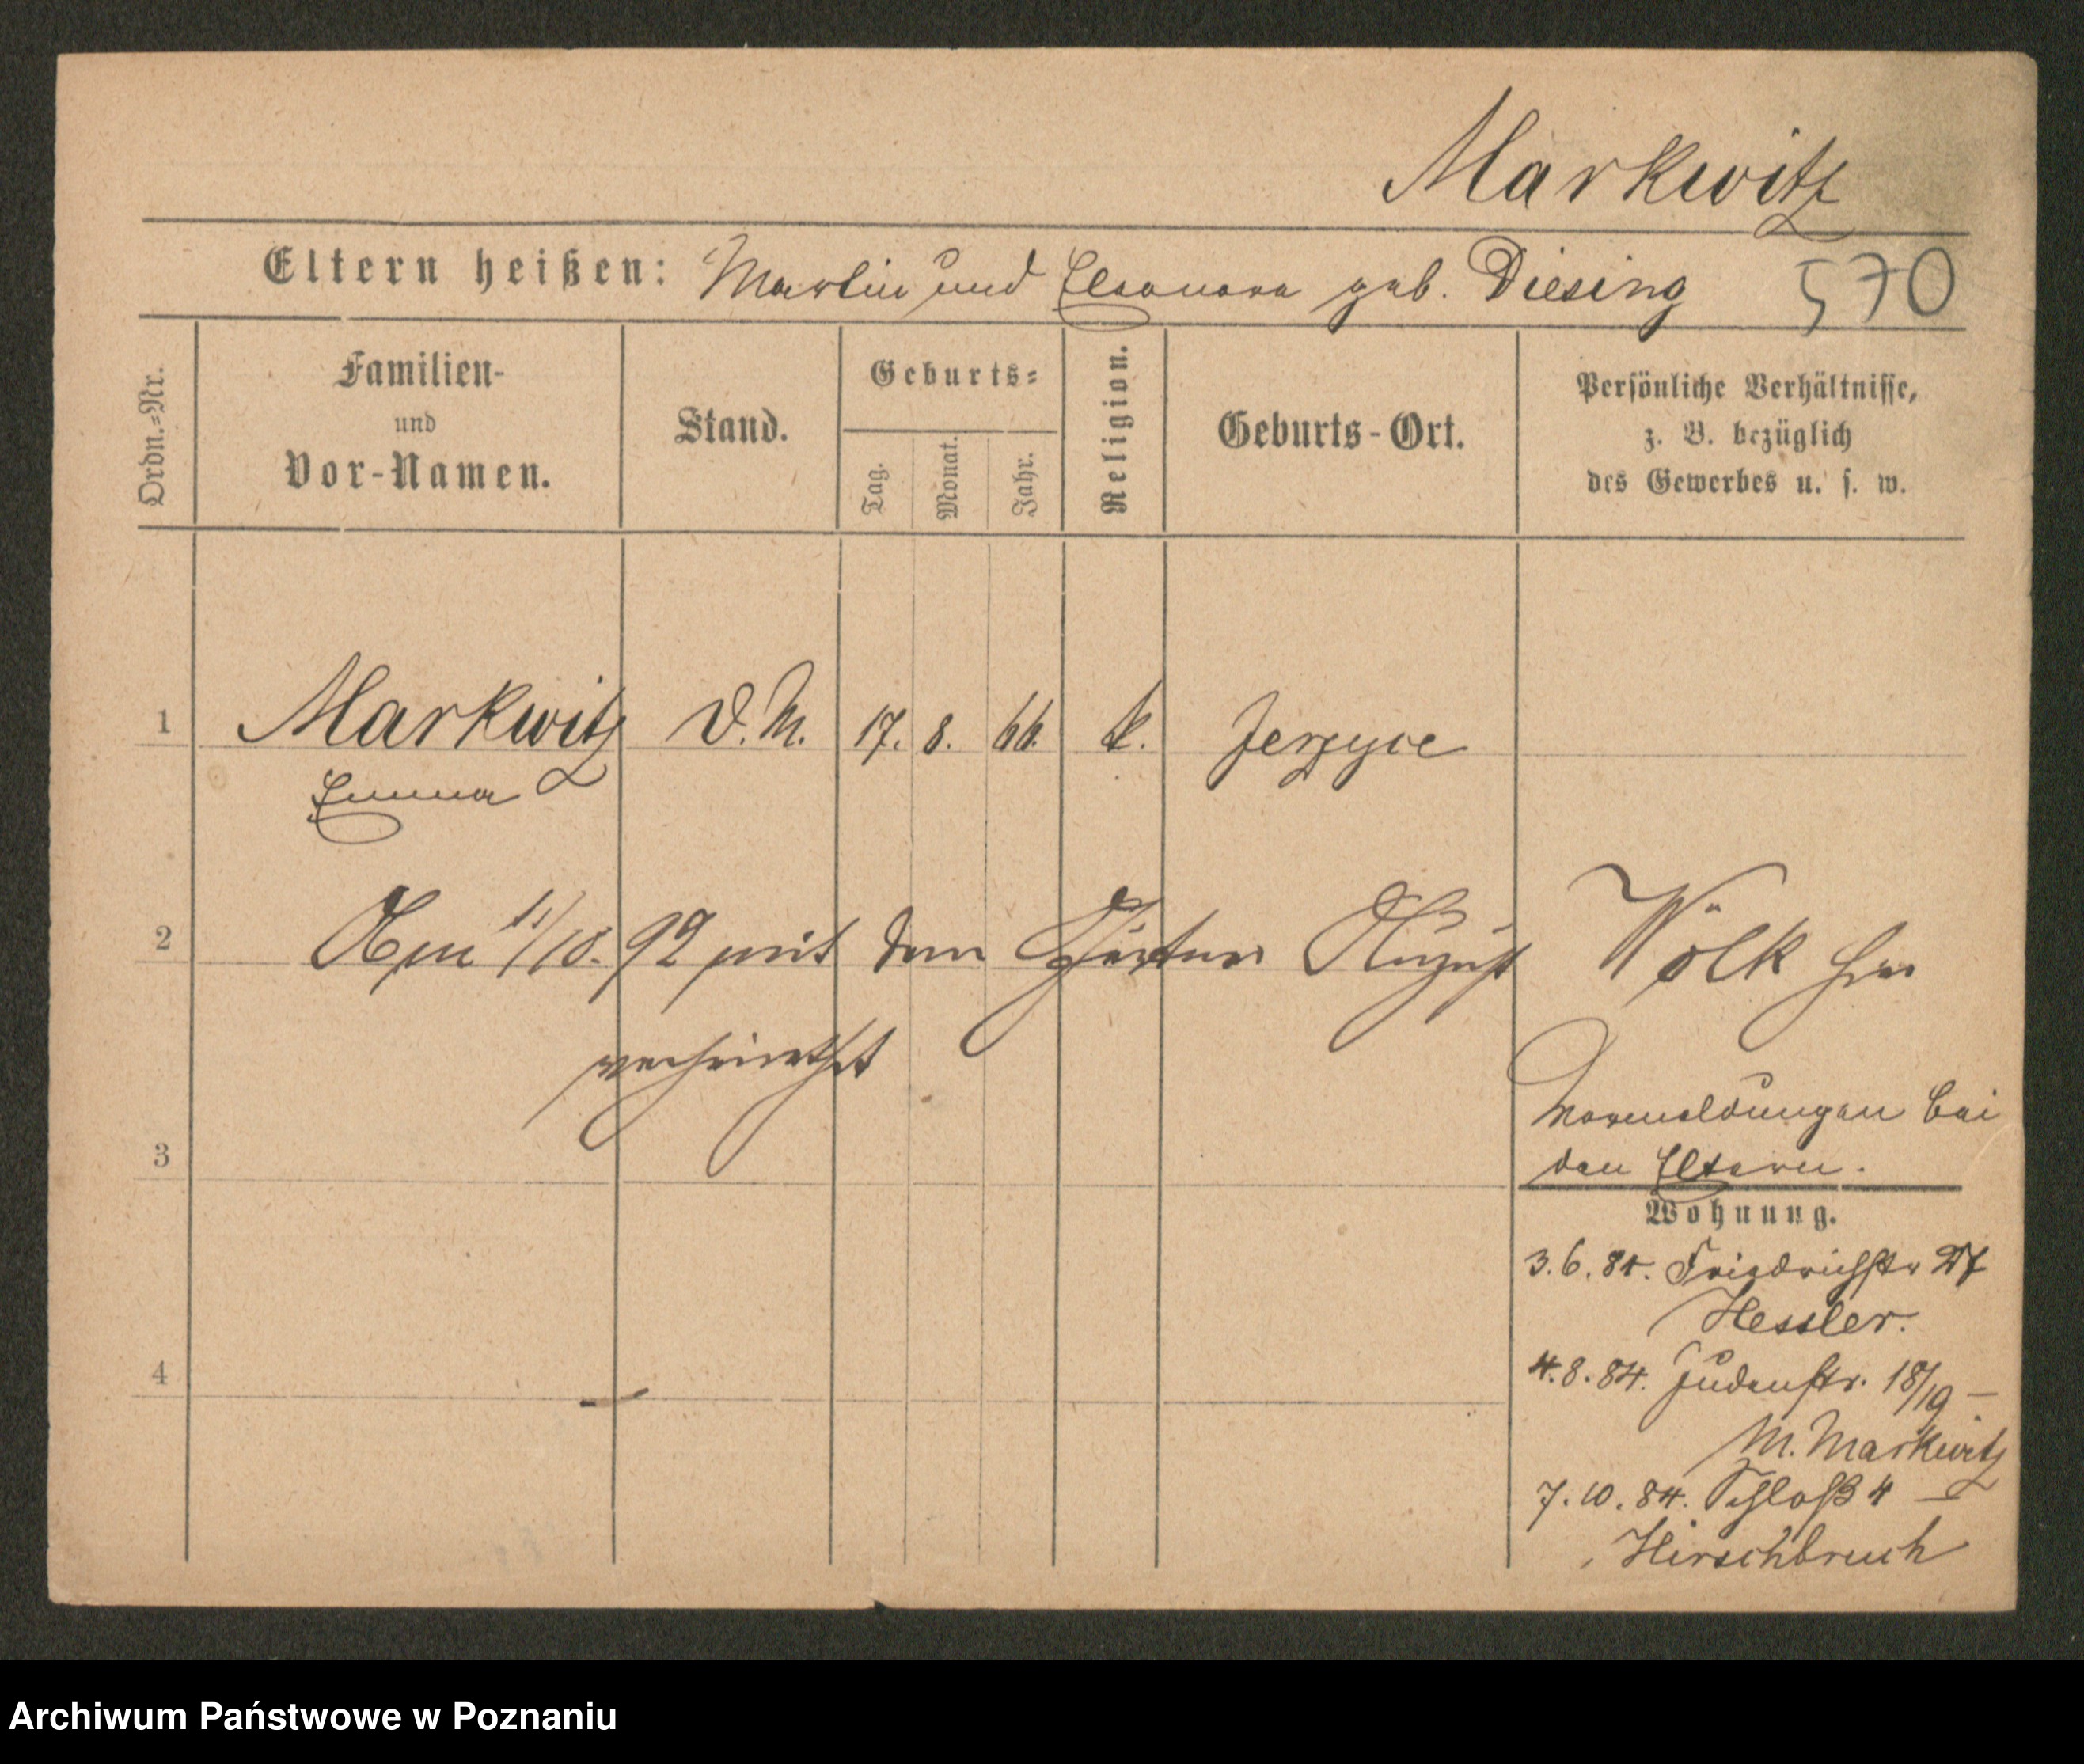 Markwitz
Eltern heißen: Martin und Eleonora geb. Diesing 570
Ordn.=Nr.
Familien-
und
Vor-Namen.
Stand.
Geburts=
Tag.
Monat.
Jahr.
Religion.
Geburts-Ort.
Persönliche Verhältnisse,
z. B. bezüglich
des Gewerbes u. s. w.
1 Markwitz D.M. 17. 8. 66. k. Jerzyce
Emma
2 Am 11/10. 92 mit dem Gärtner August Wölk hier
verheirathet
Vormeldungen bei
den Eltern.
3
Wohnung.
3.6.84. Friedrichstr 27
Hessler.
4.8.84. Judenstr. 18/19 –
4
M. Markwitz
7.10.84. Schloß 4 –
Hirschbruch
Archiwum Państwowe w Poznaniu